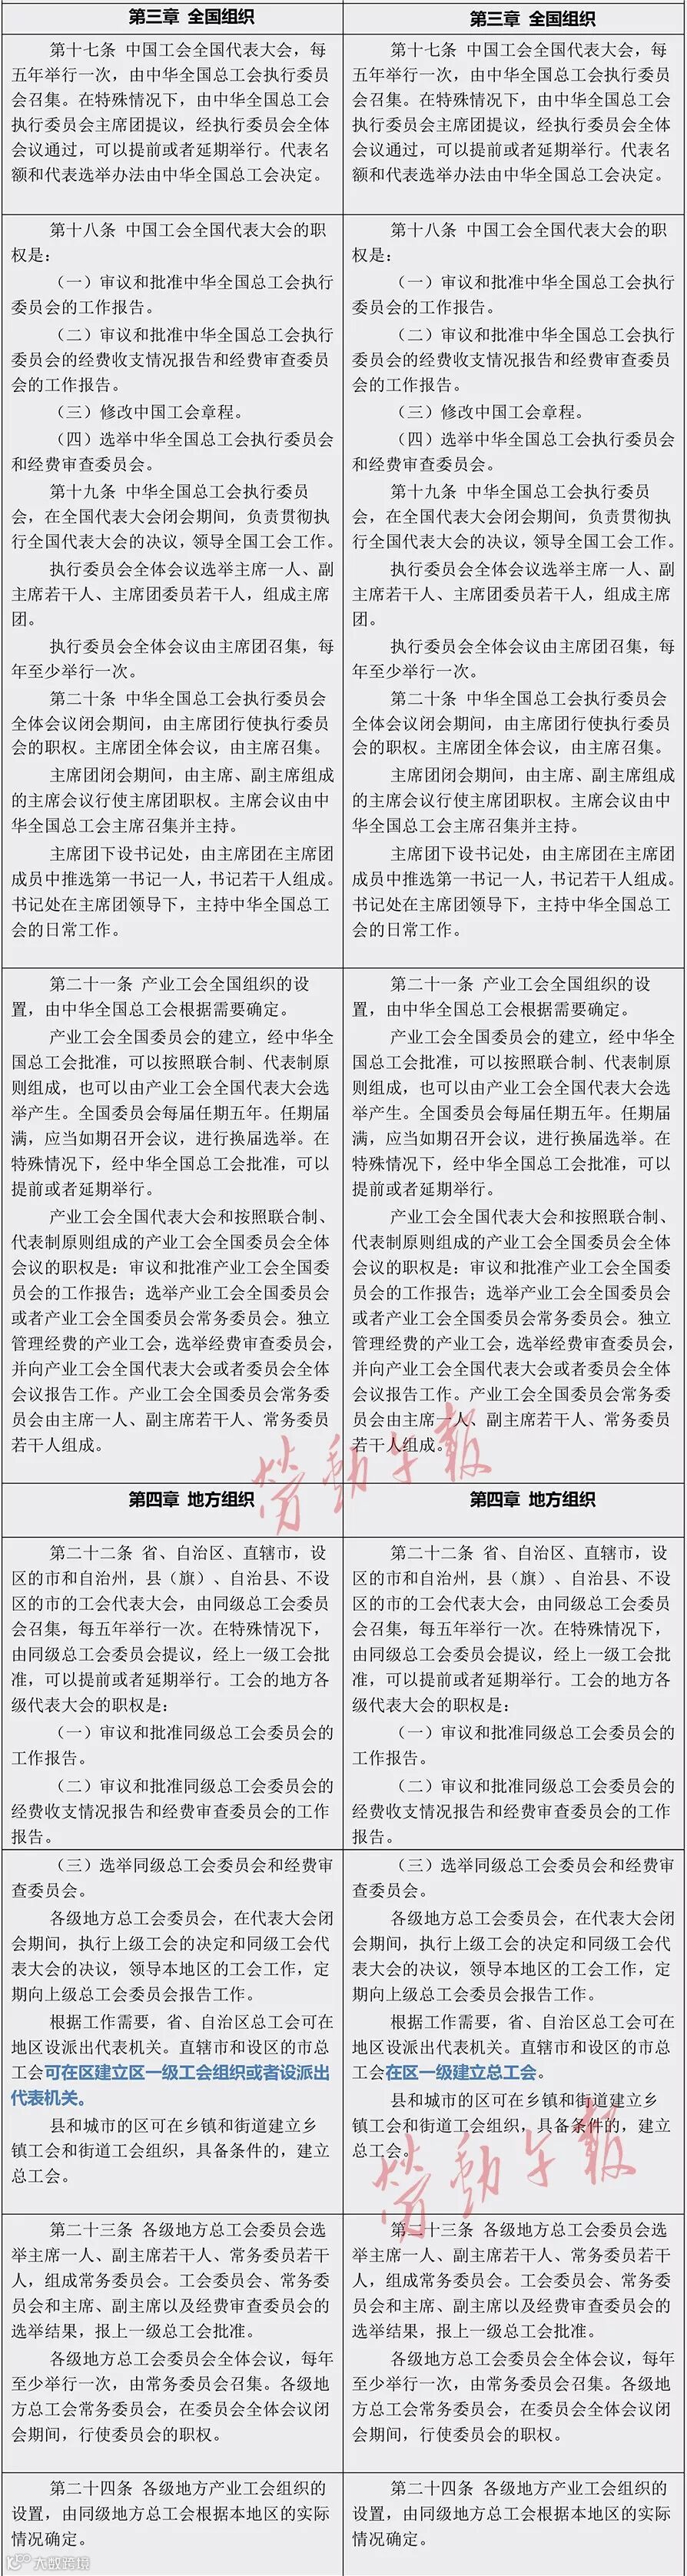 第三章 全国组织
第十七条 中国工会全国代表大会，每
五年举行一次，由中华全国总工会执行委员
会召集。在特殊情况下，由中华全国总工会
执行委员会主席团提议，经执行委员会全体
会议通过，可以提前或者延期举行。代表名
额和代表选举办法由中华全国总工会决定。
第三章 全国组织
第十七条 中国工会全国代表大会，每
五年举行一次，由中华全国总工会执行委员
会召集。在特殊情况下，由中华全国总工会
执行委员会主席团提议，经执行委员会全体
会议通过，可以提前或者延期举行。代表名
额和代表选举办法由中华全国总工会决定。
第十八条 中国工会全国代表大会的职
权是：
（一）审议和批准中华全国总工会执行
委员会的工作报告。
（二）审议和批准中华全国总工会执行
委员会的经费收支情况报告和经费审查委员
会的工作报告。
（三）修改中国工会章程。
（四）选举中华全国总工会执行委员会
和经费审查委员会。
第十九条 中华全国总工会执行委员
会，在全国代表大会闭会期间，负责贯彻执
行全国代表大会的决议，领导全国工会工作。
执行委员会全体会议选举主席一人、副
主席若干人、主席团委员若干人，组成主席
团。
执行委员会全体会议由主席团召集，每
年至少举行一次。
第二十条 中华全国总工会执行委员会
全体会议闭会期间，由主席团行使执行委员
会的职权。主席团全体会议，由主席召集。
主席团闭会期间，由主席、副主席组成
的主席会议行使主席团职权。主席会议由中
华全国总工会主席召集并主持。
主席团下设书记处，由主席团在主席团
成员中推选第一书记一人，书记若干人组成。
书记处在主席团领导下，主持中华全国总工
会的日常工作。
第十八条 中国工会全国代表大会的职
权是：
（一）审议和批准中华全国总工会执行
委员会的工作报告。
（二）审议和批准中华全国总工会执行
委员会的经费收支情况报告和经费审查委员
会的工作报告。
（三）修改中国工会章程。
（四）选举中华全国总工会执行委员会
和经费审查委员会。
第十九条 中华全国总工会执行委员
会，在全国代表大会闭会期间，负责贯彻执
行全国代表大会的决议，领导全国工会工作。
执行委员会全体会议选举主席一人、副
主席若干人、主席团委员若干人，组成主席
团。
执行委员会全体会议由主席团召集，每
年至少举行一次。
第二十条 中华全国总工会执行委员会
全体会议闭会期间，由主席团行使执行委员
会的职权。主席团全体会议，由主席召集。
主席团闭会期间，由主席、副主席组成
的主席会议行使主席团职权。主席会议由中
华全国总工会主席召集并主持。
主席团下设书记处，由主席团在主席团
成员中推选第一书记一人，书记若干人组成。
书记处在主席团领导下，主持中华全国总工
会的日常工作。
第二十一条 产业工会全国组织的设
置，由中华全国总工会根据需要确定。
产业工会全国委员会的建立，经中华全
国总工会批准，可以按照联合制、代表制原
则组成，也可以由产业工会全国代表大会选
举产生。全国委员会每届任期五年。任期届
满，应当如期召开会议，进行换届选举。在
特殊情况下，经中华全国总工会批准，可以
提前或者延期举行。
产业工会全国代表大会和按照联合制、
代表制原则组成的产业工会全国委员会全体
会议的职权是：审议和批准产业工会全国委
员会的工作报告；选举产业工会全国委员会
或者产业工会全国委员会常务委员会。独立
管理经费的产业工会，选举经费审查委员会，
并向产业工会全国代表大会或者委员会全体
会议报告工作。产业工会全国委员会常务委
员会由主席一人、副主席若干人、常务委员
若干人组成。
第二十一条 产业工会全国组织的设
置，由中华全国总工会根据需要确定。
产业工会全国委员会的建立，经中华全
国总工会批准，可以按照联合制、代表制原
则组成，也可以由产业工会全国代表大会选
举产生。全国委员会每届任期五年。任期届
满，应当如期召开会议，进行换届选举。在
特殊情况下，经中华全国总工会批准，可以
提前或者延期举行。
产业工会全国代表大会和按照联合制、
代表制原则组成的产业工会全国委员会全体
会议的职权是：审议和批准产业工会全国委
员会的工作报告；选举产业工会全国委员会
或者产业工会全国委员会常务委员会。独立
管理经费的产业工会，选举经费审查委员会，
并向产业工会全国代表大会或者委员会全体
会议报告工作。产业工会全国委员会常务委
员会由主席一人、副主席若干人、常务委员
若干人组成。
勞動午報
第四章 地方组织
第四章 地方组织
第二十二条 省、自治区、直辖市，设
区的市和自治州，县（旗）、自治县、不设
区的市的工会代表大会，由同级总工会委员
会召集，每五年举行一次。在特殊情况下，
由同级总工会委员会提议，经上一级工会批
准，可以提前或者延期举行。工会的地方各
级代表大会的职权是：
（一）审议和批准同级总工会委员会的
工作报告。
（二）审议和批准同级总工会委员会的
经费收支情况报告和经费审查委员会的工作
报告。
第二十二条 省、自治区、直辖市，设
区的市和自治州，县（旗）、自治县、不设
区的市的工会代表大会，由同级总工会委员
会召集，每五年举行一次。在特殊情况下，
由同级总工会委员会提议，经上一级工会批
准，可以提前或者延期举行。工会的地方各
级代表大会的职权是：
（一）审议和批准同级总工会委员会的
工作报告。
（二）审议和批准同级总工会委员会的
经费收支情况报告和经费审查委员会的工作
报告。
（三）选举同级总工会委员会和经费审
查委员会。
各级地方总工会委员会，在代表大会闭
会期间，执行上级工会的决定和同级工会代
表大会的决议，领导本地区的工会工作，定
期向上级总工会委员会报告工作。
根据工作需要，省、自治区总工会可在
地区设派出代表机关。直辖市和设区的市总
工会可在区建立区一级工会组织或者设派出
代表机关。
县和城市的区可在乡镇和街道建立乡
镇工会和街道工会组织，具备条件的，建立
总工会。
（三）选举同级总工会委员会和经费审
查委员会。
各级地方总工会委员会，在代表大会闭
会期间，执行上级工会的决定和同级工会代
表大会的决议，领导本地区的工会工作，定
期向上级总工会委员会报告工作。
根据工作需要，省、自治区总工会可在
地区设派出代表机关。直辖市和设区的市总
工会在区一级建立总工会。
县和城市的区可在乡镇和街道建立乡
镇工会和街道工会组织，具备条件的，建立
总工会。
勞動午報
第二十三条 各级地方总工会委员会选
举主席一人、副主席若干人、常务委员若干
人，组成常务委员会。工会委员会、常务委
员会和主席、副主席以及经费审查委员会的
选举结果，报上一级总工会批准。
各级地方总工会委员会全体会议，每年
至少举行一次，由常务委员会召集。各级地
方总工会常务委员会，在委员会全体会议闭
会期间，行使委员会的职权。
第二十三条 各级地方总工会委员会选
举主席一人、副主席若干人、常务委员若干
人，组成常务委员会。工会委员会、常务委
员会和主席、副主席以及经费审查委员会的
选举结果，报上一级总工会批准。
各级地方总工会委员会全体会议，每年
至少举行一次，由常务委员会召集。各级地
方总工会常务委员会，在委员会全体会议闭
会期间，行使委员会的职权。
第二十四条 各级地方产业工会组织的
设置，由同级地方总工会根据本地区的实际
情况确定。
第二十四条 各级地方产业工会组织的
设置，由同级地方总工会根据本地区的实际
情况确定。
大数跨境